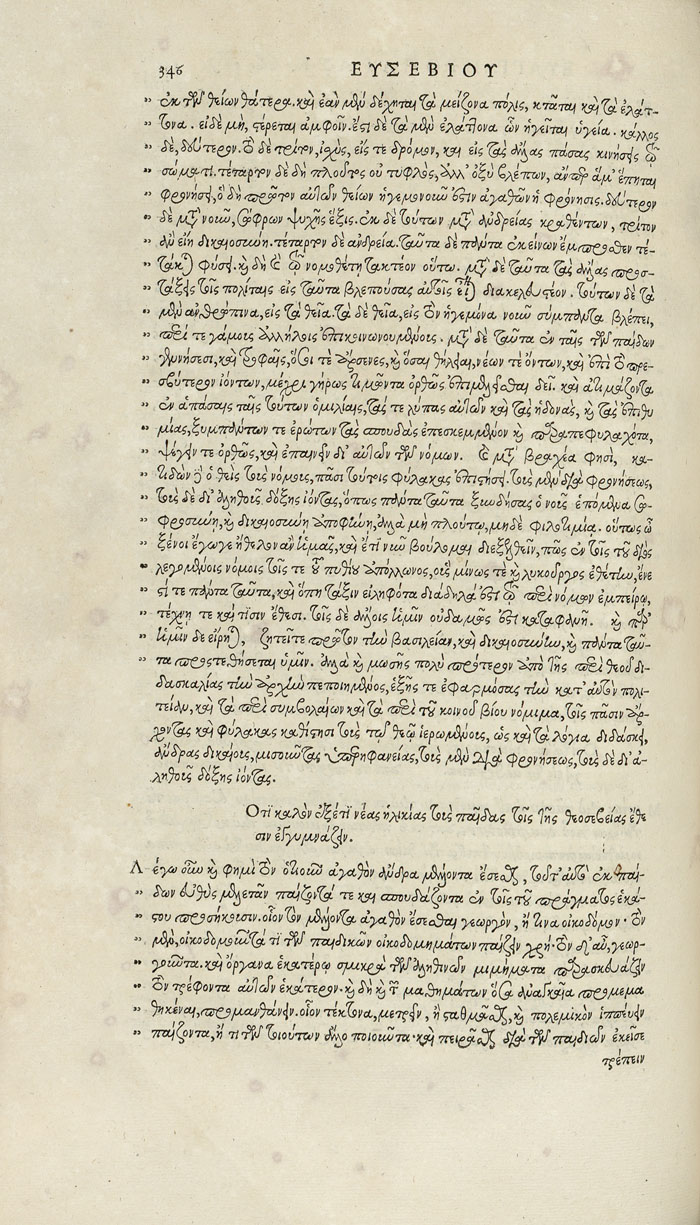 346 ΕΥΣΕΒΙΟΥ
" ἐκ τῶν θείων θάτερα. καὶ ἐὰν μὲν δέχηται τὰ μείζονα πόλις, κτᾶται καὶ τὰ ἐλάτ-
" τονα. εἰ δὲ μὴ, στέρεται ἀμφοῖν. ἔστι δὲ τὰ μὲν ἐλάττονα ὧν ἡγεῖται ὑγεία. κάλλος
" δὲ, δεύτερον. τὸ δὲ τρίτον, ἰσχὺς, εἴς τε δρόμον, καὶ εἰς τὰς ἄλλας πάσας κινήσεις τῷ
" σώματι. τέταρτον δὲ δὴ πλοῦτος οὐ τυφλὸς, ἀλλ' ὀξὺ βλέπων, ἄνπερ ἅμ' ἕπηται
" φρονήσει, ὃ δὴ πρῶτον αὐτῶν θείων ἡγεμονοῦν ἐστιν ἀγαθῶν ἡ φρόνησις. δεύτερον
" δὲ μετὰ νοῦν, σώφρων ψυχῆς ἕξις. ἐκ δὲ τούτων μετ' ἀνδρείας κραθέντων, τρίτον
" ἂν εἴη δικαιοσύνη. τέταρτον δὲ ἀνδρεία. ταῦτα δὲ πάντα ἐκείνων ἔμπροσθεν τέ-
" τακται φύσει. καὶ δὴ καὶ τῷ νομοθέτῃ τακτέον οὕτω. μετὰ δὲ ταῦτα τὰς ἄλλας προσ-
" τάξεις τοῖς πολίταις εἰς ταῦτα βλεπούσας αὐτοῖς εἶναι διακελευστέον. τούτων δὲ τὰ
" μὲν ἀνθρώπινα, εἰς τὰ θεῖα. τὰ δὲ θεῖα, εἰς τὸν ἡγεμόνα νοῦν σύμπαντα βλέπει,
" περί τε γάμους ἀλλήλοις ἐπικοινωνουμένους. μετὰ δὲ ταῦτα ἐν ταῖς τῶν παίδων
" γεννήσεσι, καὶ τροφαῖς, ὅσοι τε ἄρσενες, καὶ ὅσαι θήλειαι, νέων τε ὄντων, καὶ ἐπὶ τὸ πρε-
" σβύτερον ἰόντων, μέχρι γήρως τιμῶντα ὀρθῶς ἐπιμελεῖσθαι δεῖ. καὶ ἀτιμάζοντα
" ἐν ἁπάσαις ταῖς τούτων ὁμιλίαις, τάς τε λύπας αὐτῶν καὶ τὰς ἡδονὰς, καὶ τὰς ἐπιθυ
" μίας, ξυμπάντων τε ἐρώτων τὰς σπουδὰς ἐπεσκεμμένον καὶ παραπεφυλαχότα,
" ψέγειν τε ὀρθῶς, καὶ ἐπαινεῖν δι' αὐτῶν τῶν νόμων. καὶ μετὰ βραχέα φησὶ, κα-
" τιδὼν δὲ ὁ θεὶς τοὺς νόμους, πᾶσι τούτοις φύλακας ἐπιστήσει. τοὺς μὲν διὰ φρονήσεως,
" τοὺς δὲ δι' ἀληθοῦς δόξης ἰόντας, ὅπως πάντα ταῦτα ξυνδήσας ὁ νοῦς ἑπόμενα σω-
" φροσύνῃ, καὶ δικαιοσύνῃ ἀποφήνῃ, ἀλλὰ μὴ πλούτῳ, μηδὲ φιλοτιμίᾳ. οὕτως ὦ
" ξένοι ἔγωγε ἤθελον ἂν ὑμᾶς, καὶ ἔτι νῦν βούλομαι διεξελθεῖν, πῶς ἐν τοῖς τοῦ διὸς
" λεγομένοις νόμοις τοῖς τε τοῦ πυθίου ἀπόλλωνος, οὓς μίνως τε καὶ λυκοῦργος ἐθέτην, ἔνε
" στί τε πάντα ταῦτα, καὶ ὅπη τάξιν εἰληφότα διάδηλά ἐστι τῷ περὶ νόμων ἐμπείρῳ,
" τέχνῃ τε καὶ τισὶν ἔθεσι. τοῖς δὲ ἄλλοις ἡμῖν οὐδαμῶς ἐστι καταφανῆ. καὶ παρ'
" ἡμῖν δὲ εἴρηται, ζητεῖτε πρῶτον τὴν βασιλείαν, καὶ δικαιοσύνην, καὶ πάντα ταῦ-
" τα προστεθήσεται ὑμῖν. ἀλλὰ καὶ μωσῆς πολὺ πρότερον ἀπὸ τῆς περὶ θεοῦ δι-
δασκαλίας τὴν ἀρχὴν πεποιημένος, ἑξῆς τε ἐφαρμόσας τὴν κατ' αὐτὸν πολι-
τείαν, καὶ τὰ περὶ συμβολαίων καὶ τὰ περὶ τοῦ κοινοῦ βίου νόμιμα, τοῖς πᾶσιν ἄρ-
χοντας καὶ φύλακας καθίστησι τοὺς τῷ θεῷ ἱερωμένους, ὡς καὶ τὰ λόγια διδάσκει,
ἄνδρας δικαίους, μισοῦντας ὑπερηφανείας, τοὺς μὲν διὰ φρονήσεως, τοὺς δὲ δι' ἀ-
ληθοῦς δόξης ἰόντας.
Οτι καλὸν ἐξέτι νέας ἡλικίας τοὺς παῖδας τοῖς τῆς θεοσεβείας ἔθε
σιν ἐγγυμνάζειν.
Λ έγω οὖν καὶ φημὶ τὸν ὁτιοῦν ἀγαθὸν ἄνδρα μέλλοντα ἔσεσθαι, τοῦτ' αὐτὸ ἐκ παί-
" δων εὐθὺς μελετᾶν παίζοντά τε καὶ σπουδάζοντα ἐν τοῖς τοῦ πράγματος ἑκά-
" στου προσήκουσιν. οἷον τὸν μέλλοντα ἀγαθὸν ἔσεσθαι γεωργὸν, ἤ τινα οἰκοδόμον. τὸν
" μὲν, οἰκοδομοῦντά τι τῶν παιδικῶν οἰκοδομημάτων παίζειν χρή. τὸν δ' αὖ, γεωρ-
" γοῦντα. καὶ ὄργανα ἑκατέρῳ σμικρὰ τῶν ἀληθινῶν μιμήματα παρασκευάζειν
" τὸν τρέφοντα αὐτῶν ἑκάτερον. καὶ δὴ καὶ τῶν μαθημάτων ὅσα ἀναγκαῖα προμεμα
" θηκέναι, προμανθάνειν. οἷον τέκτονα, μετρεῖν, ἢ σταθμᾶσθαι, καὶ πολεμικὸν ἱππεύειν
" παίζοντα, ἤ τι τῶν τοιούτων ἄλλο ποιοῦντα. καὶ πειρᾶσθαι διὰ τῶν παιδιῶν ἐκεῖσε
τρέπειν